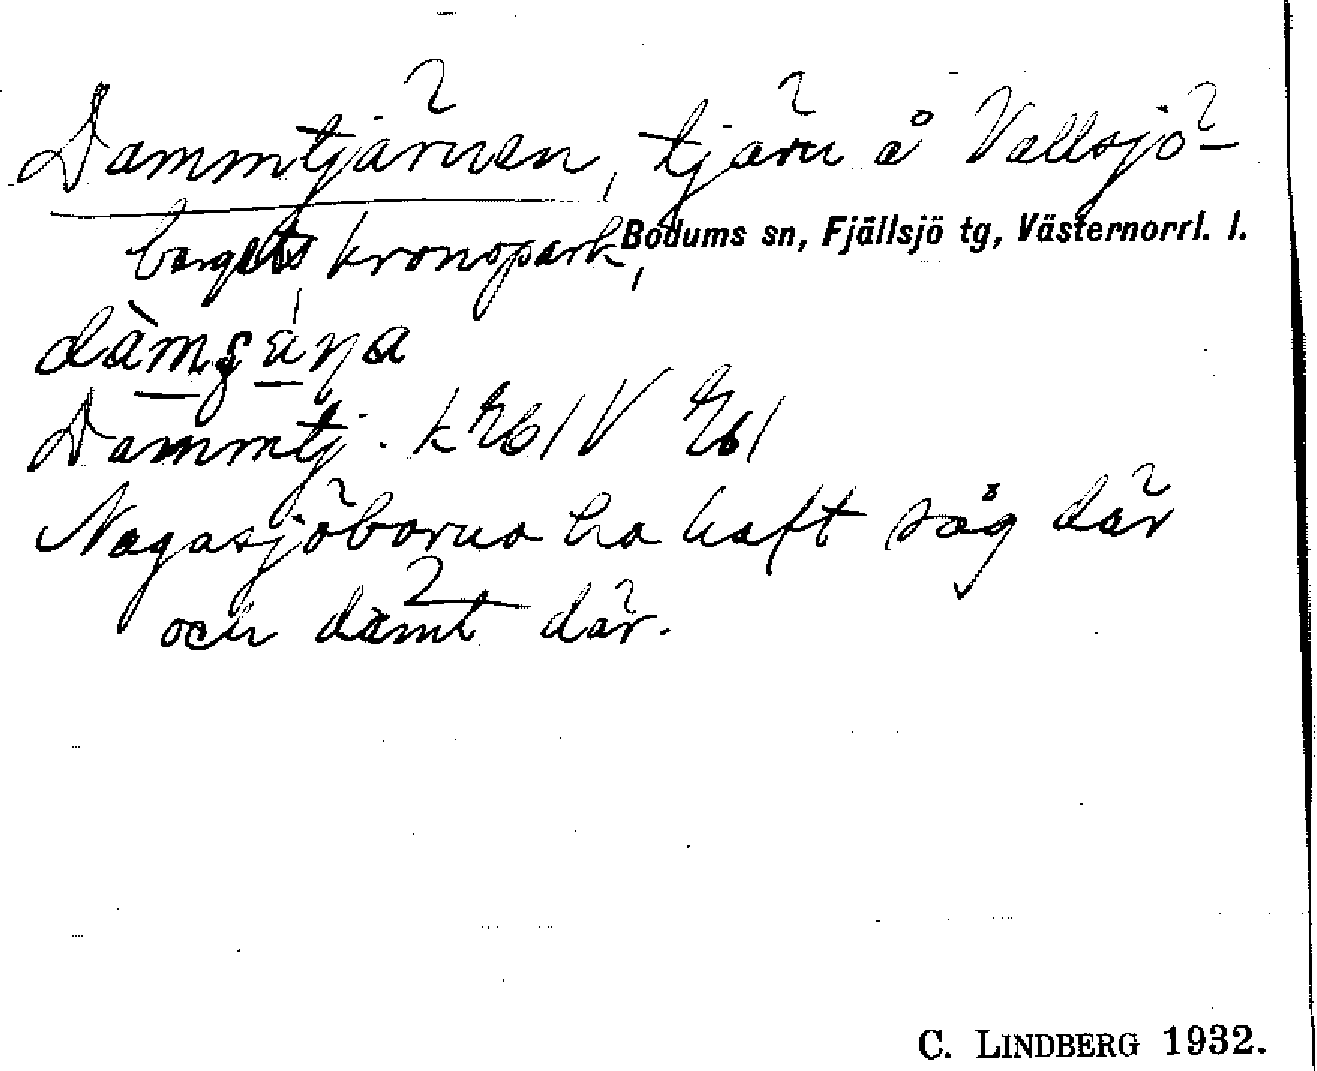 Dammtjärnen, tjärn å Vallsjö-
bergets kronopark, Bodums sn, Fjällsjö tg, Västernorrl. l.
Dammtj.
Nagasjöborna ha haft såg där
och dämt där.
C. LINDBERG 1932.